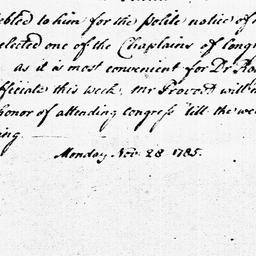 ebted to him for the polite notice of
elected one of the Chaplains of Congr
as it is most convenient for Dr Ro
fficiate this week, Mr Provost will
honor of attending congress 'till the we
ing.
Monday Nov. 28 1785.